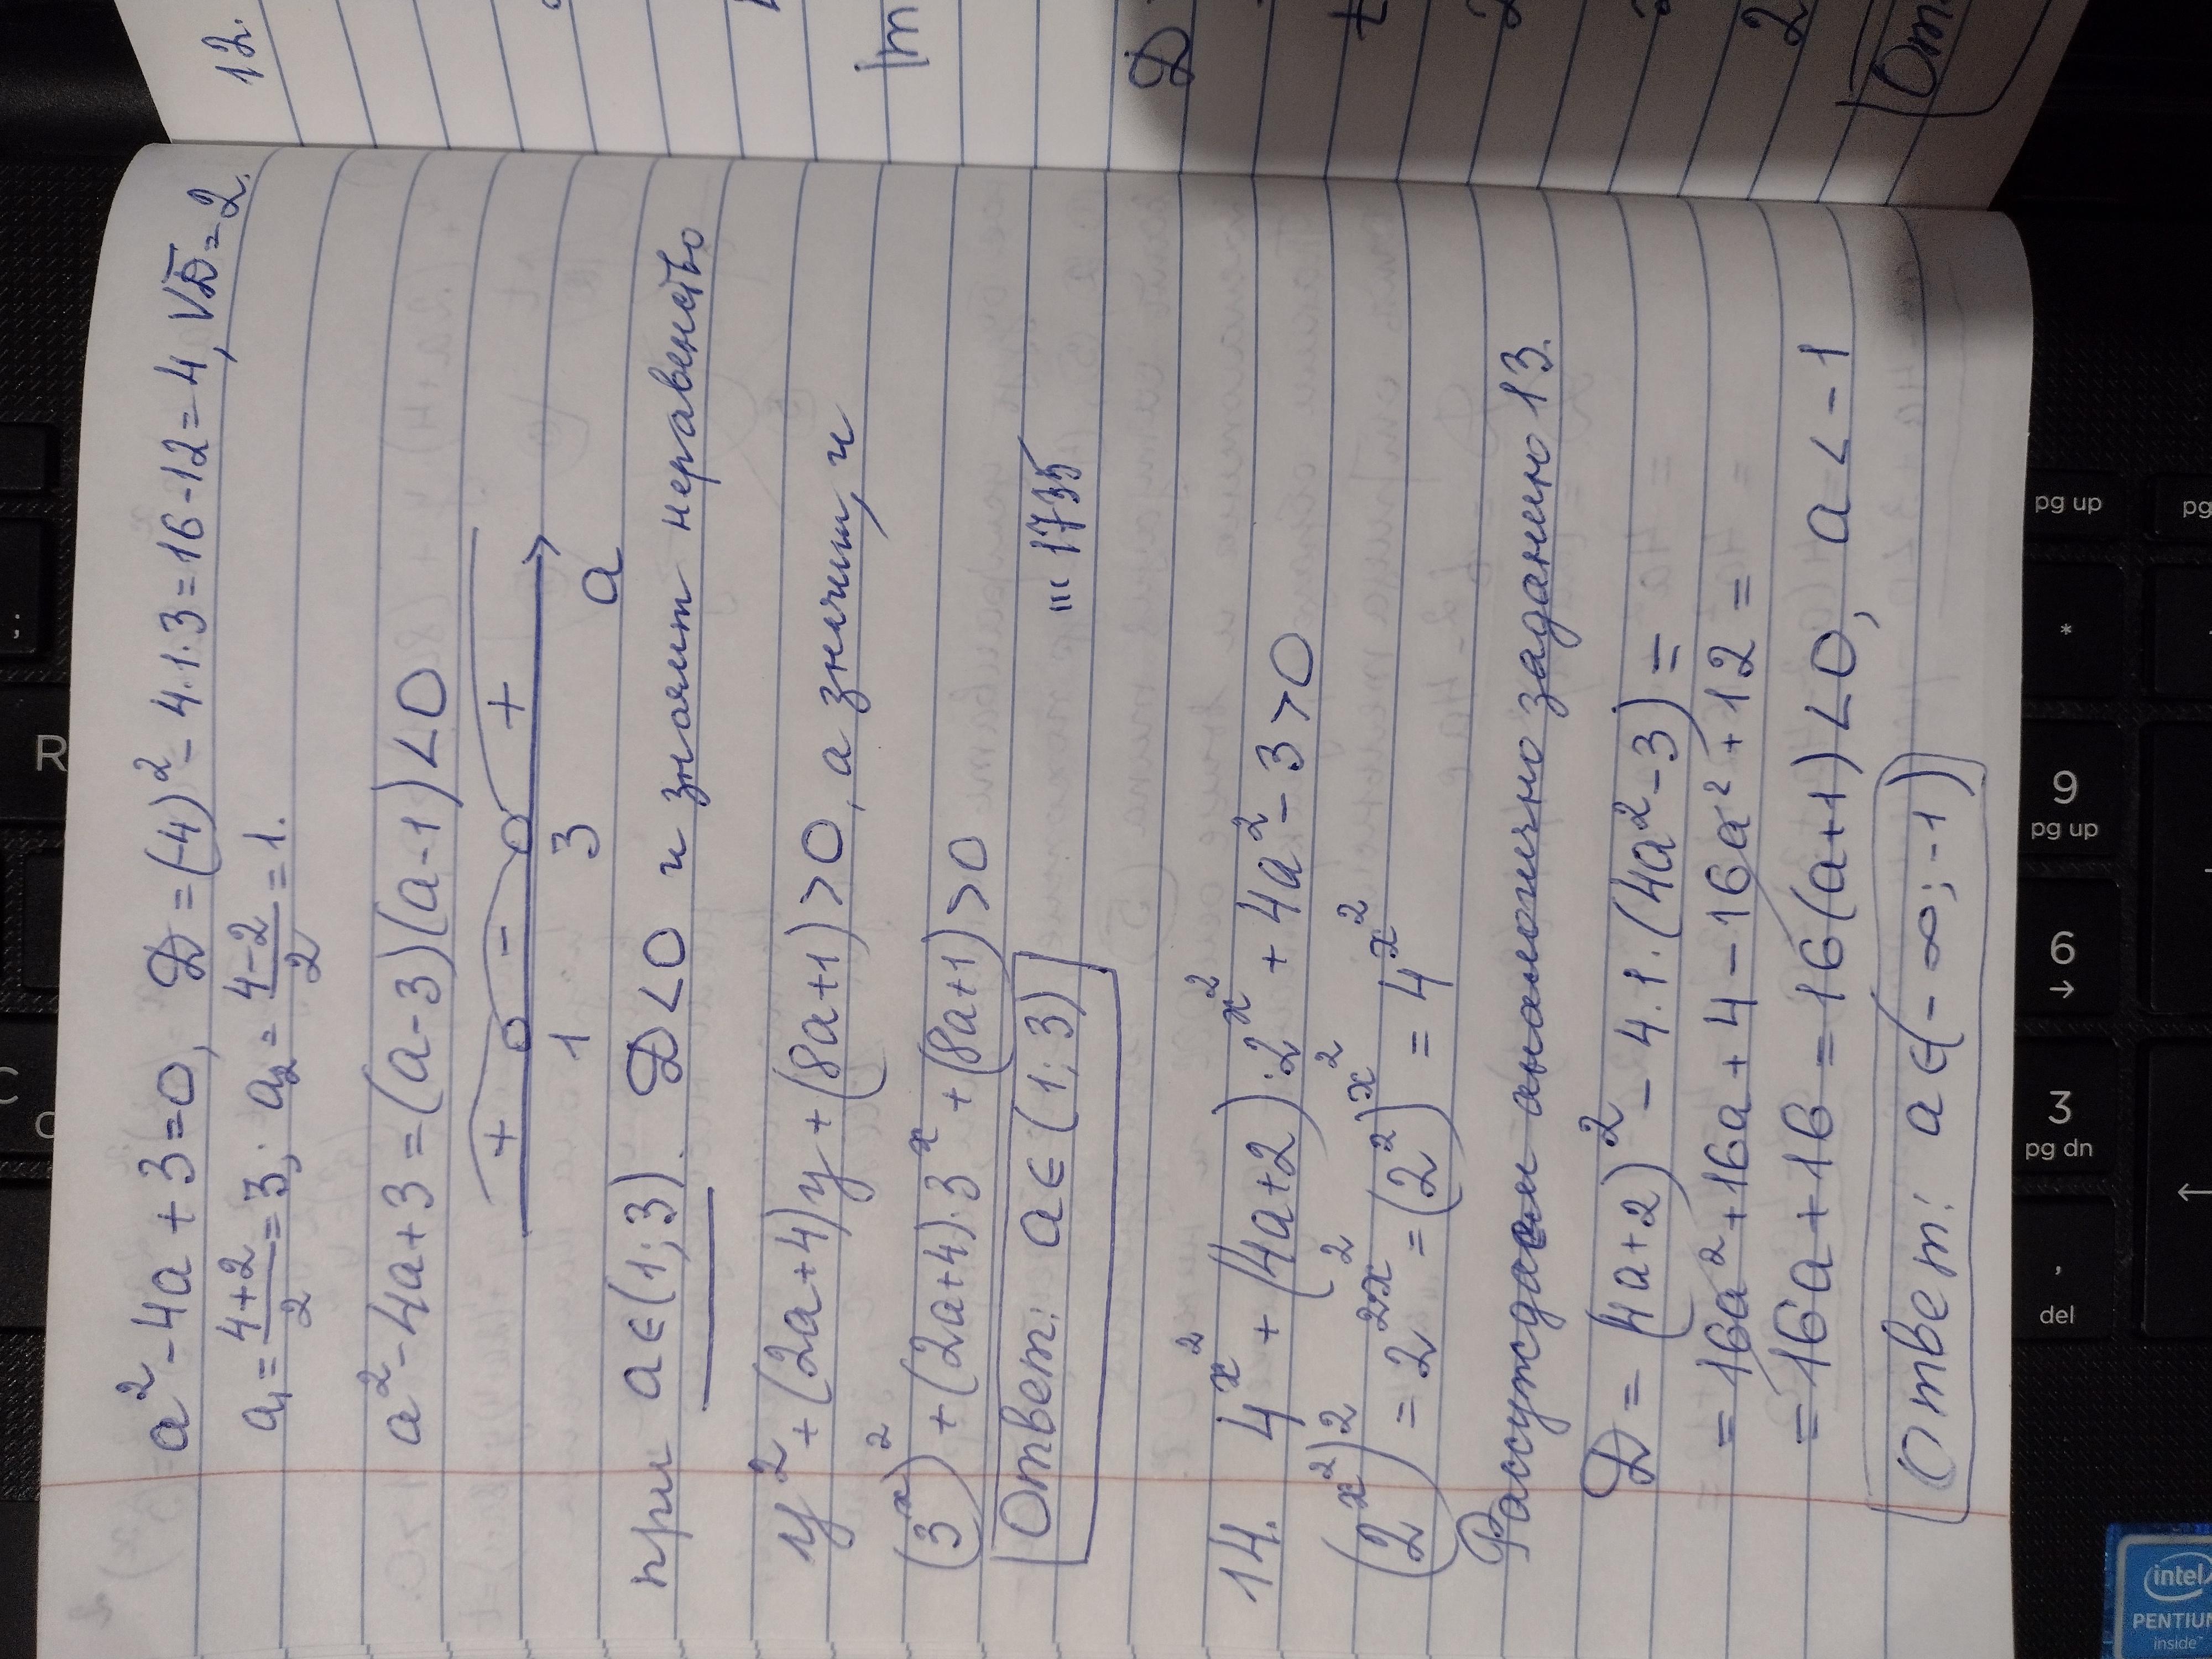 a² - 4a + 3 = 0, D = (-4)² - 4·1·3 = 16 - 12 = 4, √D = 2.
a₁ = (4+2)/2 = 3; a₂ = (4-2)/2 = 1.
a² - 4a + 3 = (a-3)(a-1) < 0
+ - +
1 3 a
при a ∈ (1; 3). D < 0 и значит неравенство
y² + (2a+4)y + (8a+1) > 0, а значит, и
(3ˣ)² + (2a+4)·3ˣ + (8a+1) > 0
Ответ: a ∈ (1; 3) ''' 1735
14. 4^x² + (4a+2)·2^x² + 4a² - 3 > 0
(2^x²)² = 2^2x² = (2²)^x² = 4^x²
Рассуждаем аналогично заданию 13.
D = (4a+2)² - 4·1·(4a² - 3) =
= 16a² + 16a + 4 - 16a² + 12 =
= 16a + 16 = 16(a+1) < 0, a < -1
Ответ: a ∈ (-∞; -1)
12.
Im
D
t
2
2
От
R
C
pg up
pg
*
9
pg up
6
↓
3
pg dn
.
del
←
intel
PENTIUM
inside